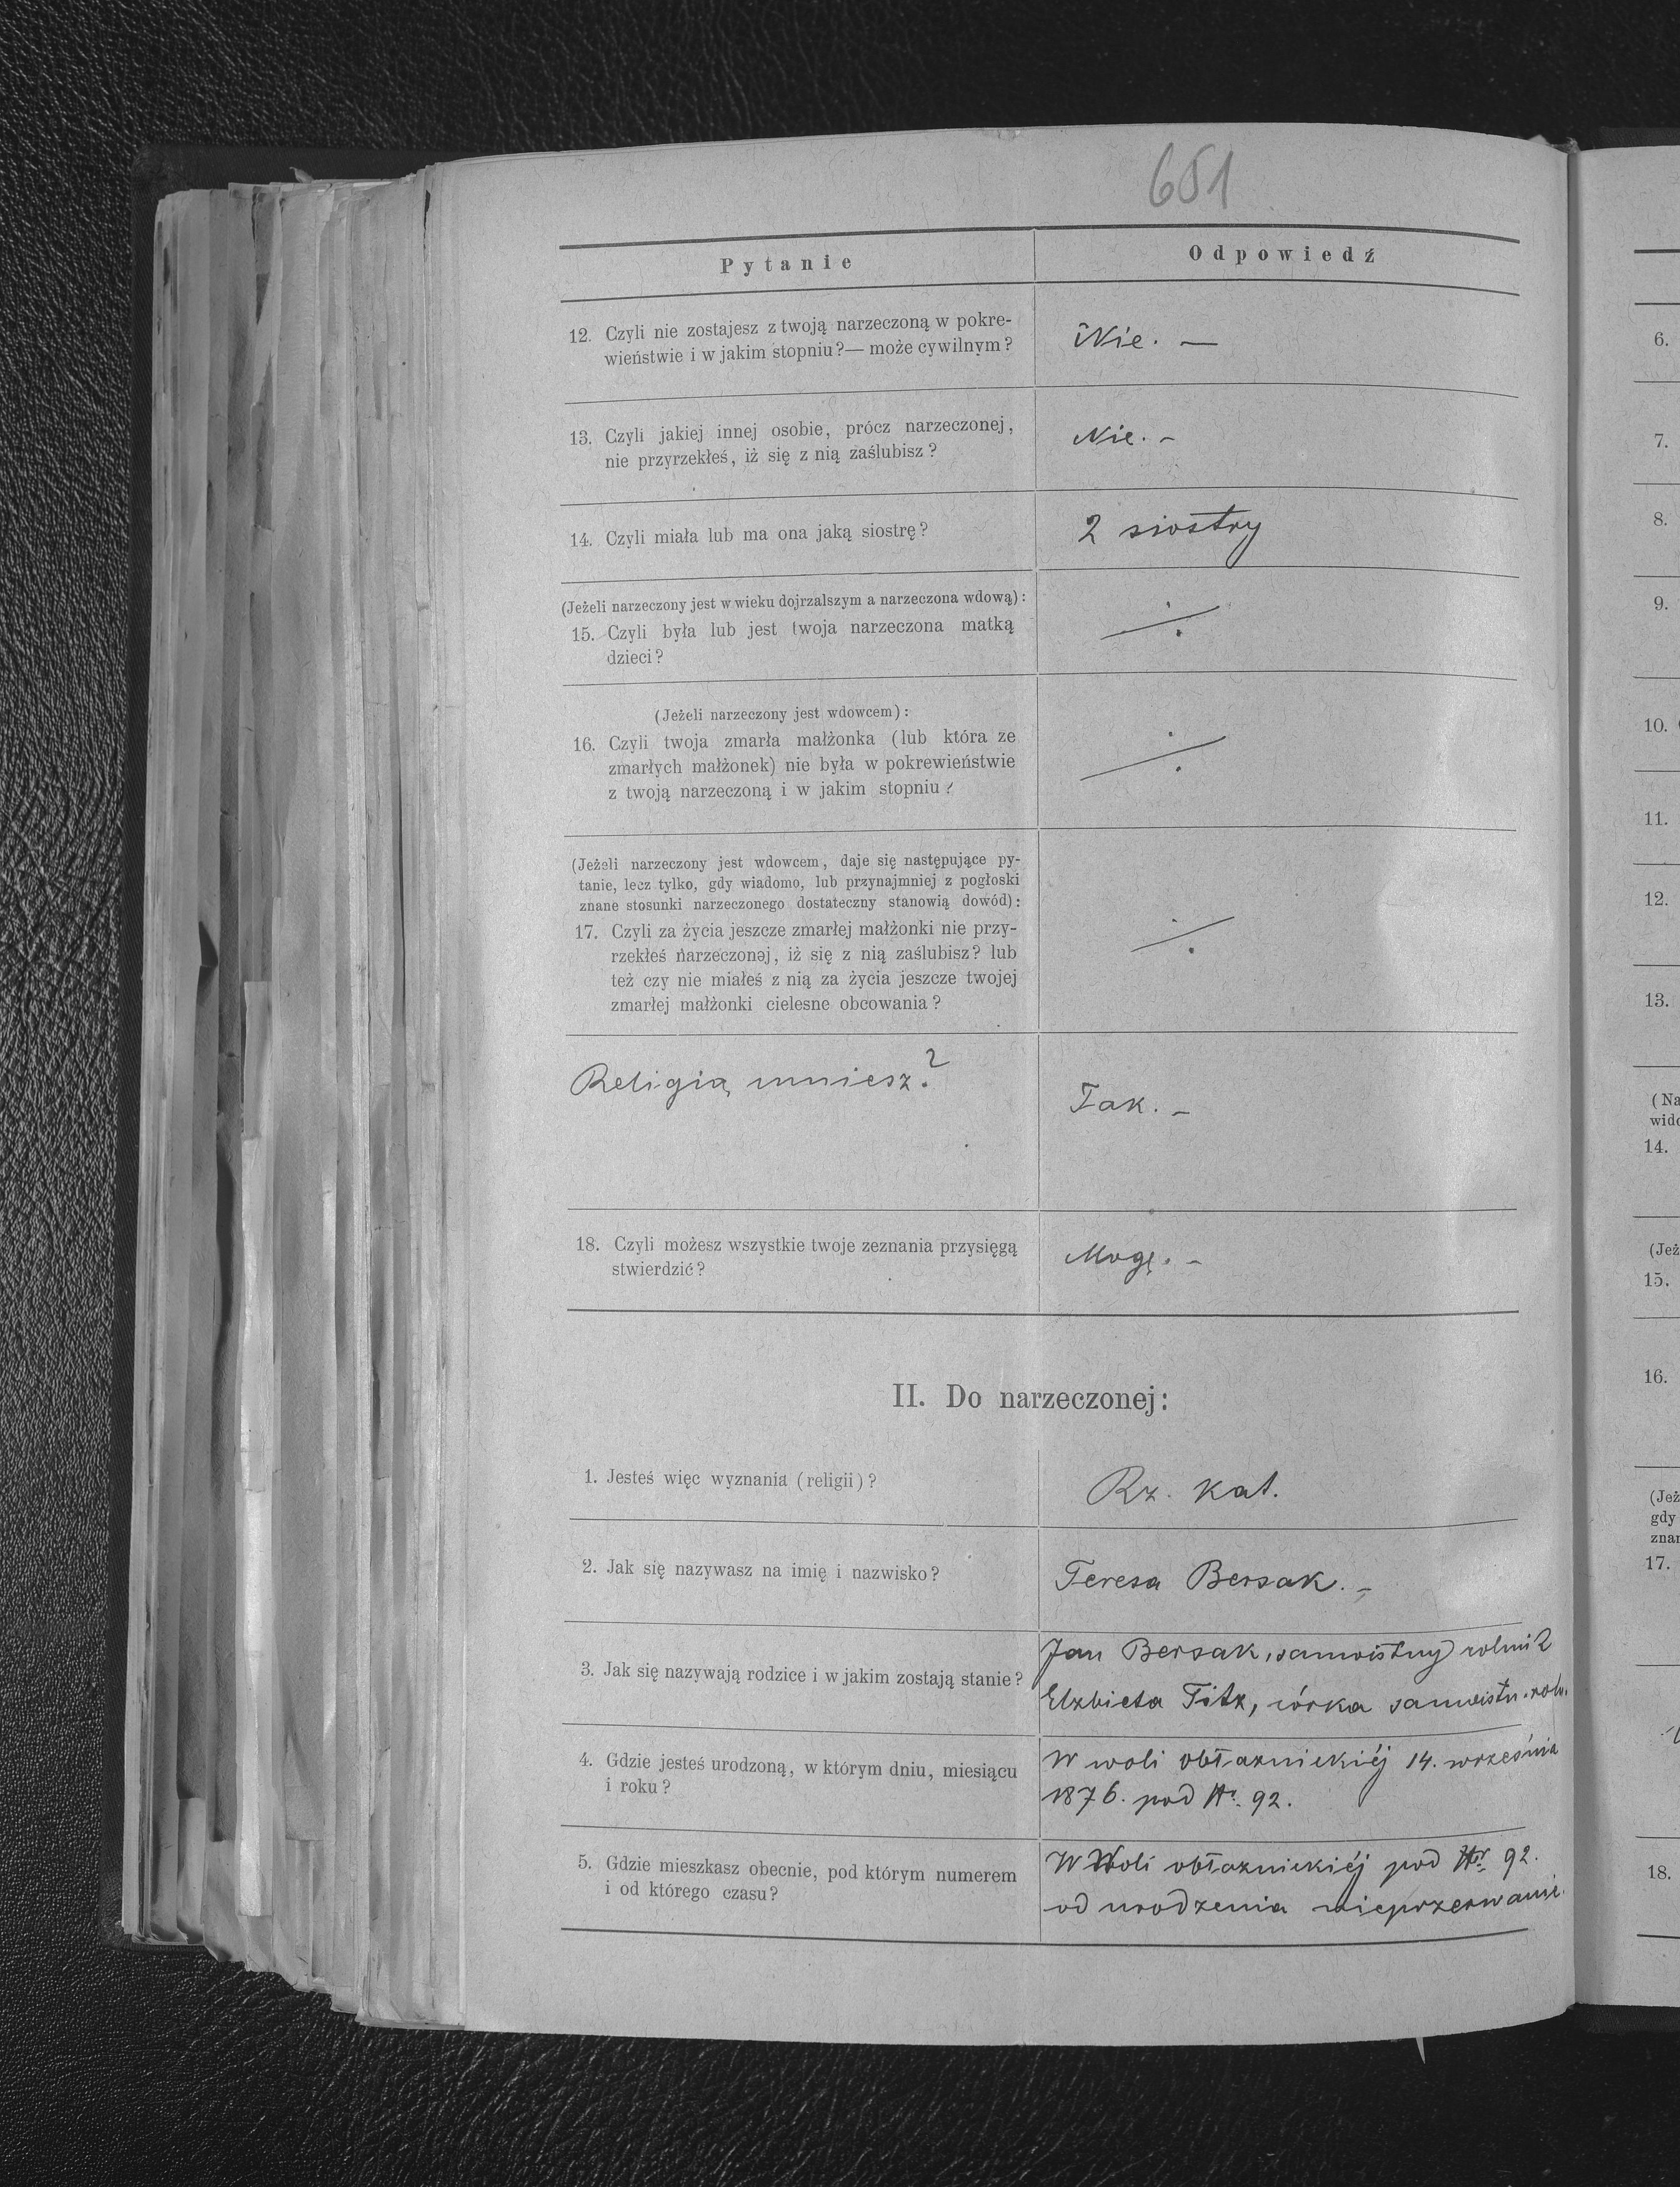 651
Pytanie
Odpowiedź
12. Czyli nie zostajesz z twoją narzeczoną w pokre-
wieństwie i w jakim stopniu?— może cywilnym?
Nie. —
13. Czyli jakiej innej osobie, prócz narzeczonej,
nie przyrzekłeś, iż się z nią zaślubisz?
Nie. –
14. Czyli miała lub ma ona jaką siostrę?
2 siostry
(Jeżeli narzeczony jest w wieku dojrzalszym a narzeczona wdową):
15. Czyli była lub jest twoja narzeczona matką
dzieci?
÷
(Jeżeli narzeczony jest wdowcem):
16. Czyli twoja zmarła małżonka (lub która ze
zmarłych małżonek) nie była w pokrewieństwie
z twoją narzeczoną i w jakim stopniu?
÷
(Jeżeli narzeczony jest wdowcem, daje się następujące py-
tanie, lecz tylko, gdy wiadomo, lub przynajmniej z pogłoski
znane stosunki narzeczonego dostateczny stanowią dowód):
17. Czyli za życia jeszcze zmarłej małżonki nie przy-
rzekłeś narzeczonej, iż się z nią zaślubisz? lub
też czy nie miałeś z nią za życia jeszcze twojej
zmarłej małżonki cielesne obcowania?
÷
Religią umiesz?
Tak. –
18. Czyli możesz wszystkie twoje zeznania przysięgą
stwierdzić?
Mogę. –
II. Do narzeczonej:
1. Jesteś więc wyznania (religii)?
Rz. kat.
2. Jak się nazywasz na imię i nazwisko?
Teresa Bersak. –
3. Jak się nazywają rodzice i w jakim zostają stanie?
Jan Bersak, samoistny rolnik
Elzbieta Titz, córka samoistn. roln.
4. Gdzie jesteś urodzoną, w którym dniu, miesiącu
i roku?
W woli obłaznickiéj 14. września
1876. pod Nr. 92.
5. Gdzie mieszkasz obecnie, pod którym numerem
i od którego czasu?
W Woli obłaznickiéj pod Nr. 92.
od urodzenia nieprzerwanie.
6.
7.
8.
9.
10.
11.
12.
13.
(Na
wido
14.
(Jeż
15.
16.
(Jeż
gdy
znan
17.
18.